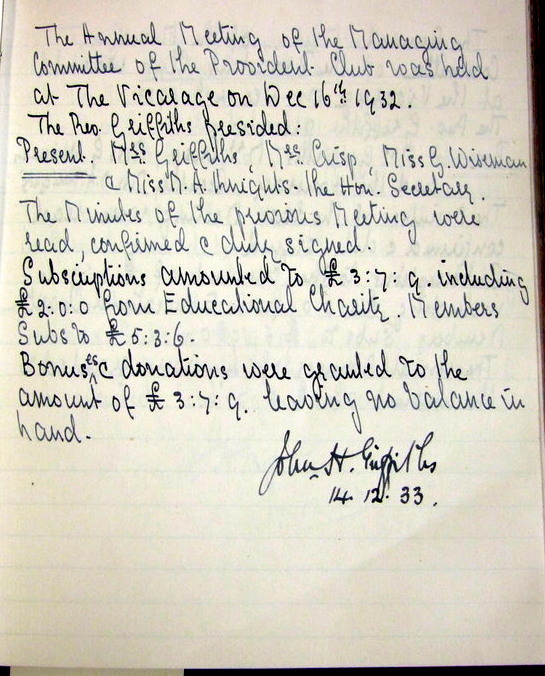 The Annual Meeting of the Managing
Committee of the Provident Club was held
at The Vicarage on Dec 16th 1932.
The Rev. Griffiths presided.
Present. Mrs. Griffiths, Mrs. Crisp, Miss G. Wiseman
& Miss M. A. Knights. the Hon. Secretary.
The Minutes of the previous Meeting were
read, confirmed & duly signed.
Subscriptions amounted to £3:7:9. including
£2:0:0 from Educational Charity. Members
Subs to £5:3:6.
Bonuses & donations were granted to the
amount of £3:7:9. leaving no balance in
hand.
John H. Griffiths
14. 12. 33.